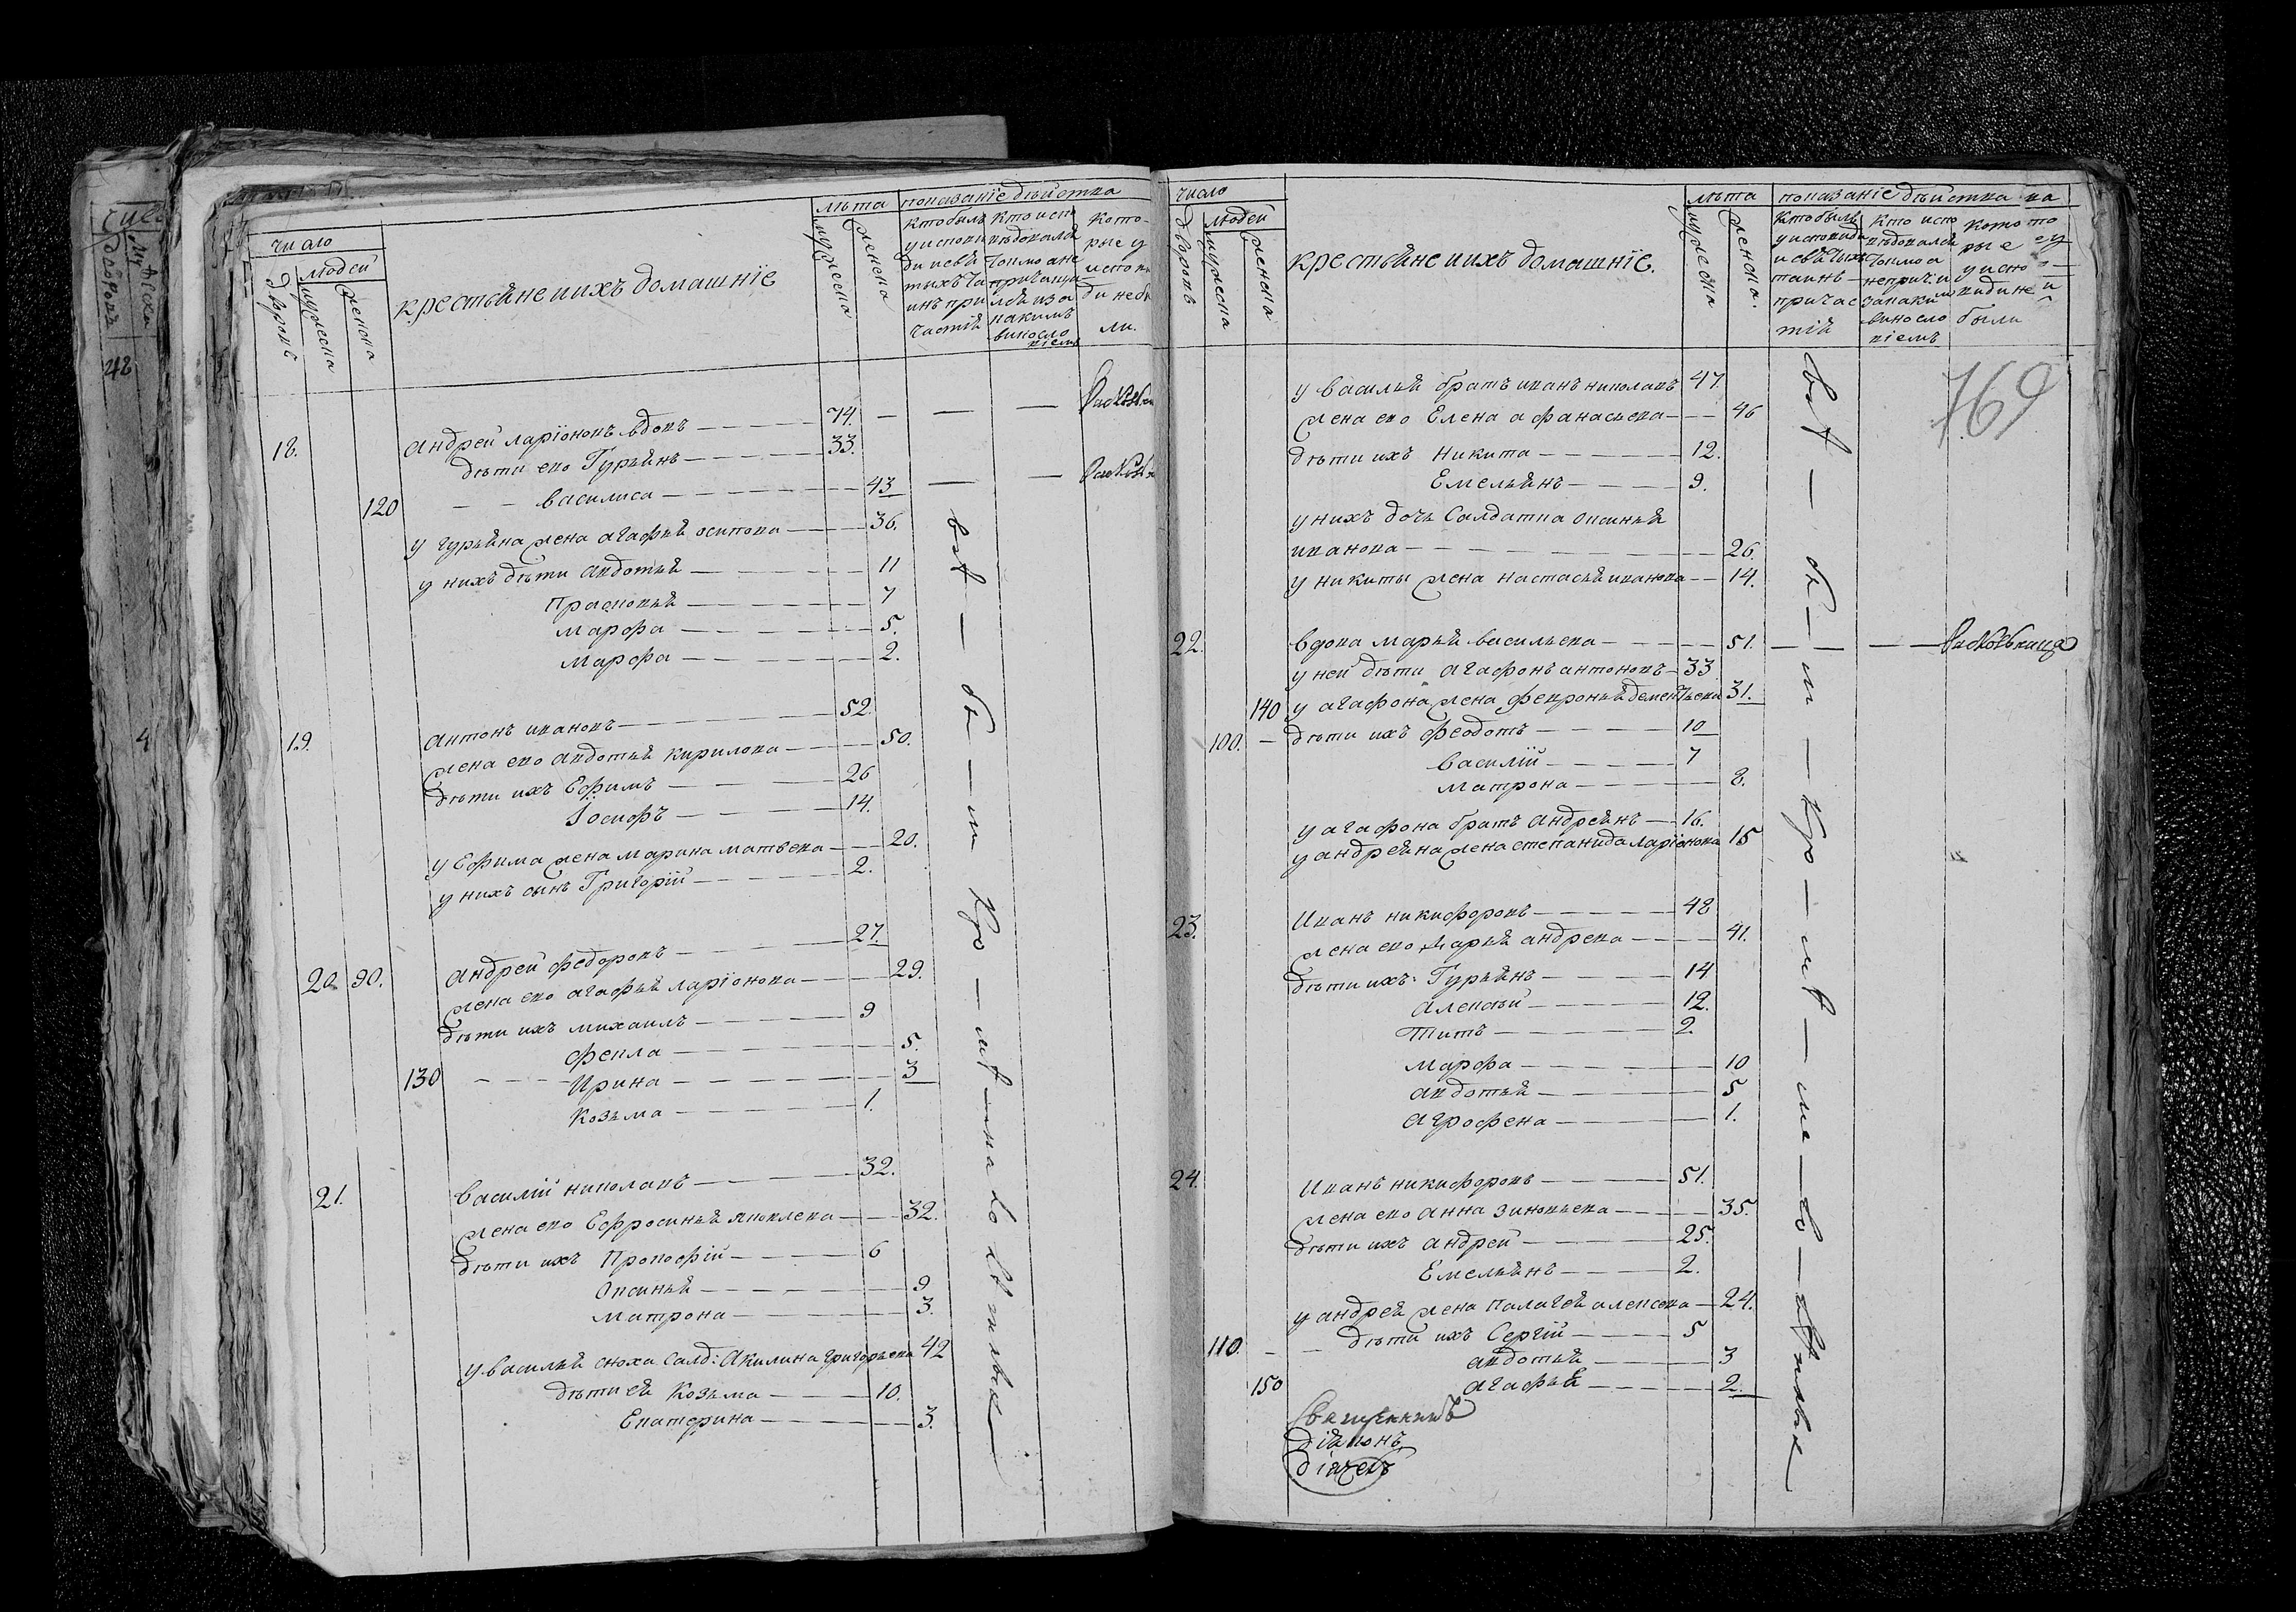 число
лѣта показанїе дѣйства
дворовъ
людей
мужеска
женска
крестьяне и ихъ домашнїе
мужеска
женска
кто былъ у исповѣди и святыхъ таинъ причастїя
кто исповѣдовался токмо а не причащался и за какимъ винословїемъ
которые у исповѣди не были.
18. Андрей ларїоновъ вдовъ 74.
дѣти ево Гурьянъ 33.
120 василиса 43
у гурьяна жена агафья осипова 36.
у нихъ дѣти авдотья 11
Прасковья 7
марфа 5.
марфа 2.
19. Антонъ ивановъ 52.
жена ево авдотья кирилова 50.
дѣти ихъ Ефимъ 26
Iосифъ 14.
у Ефима жена марина матвева 20.
у нихъ сынъ Григорїй 2.
20. 90. Андрей федоровъ 27.
жена ево агафья ларїонова 29.
дѣти ихъ михаилъ 9
фекла 5.
130 Ирина 3
Козьма 1.
21. Василїй николавъ 32.
жена ево Ефросинья яковлева 32.
дѣти ихъ Прокофїй 6
Оксинья 9
матрона 3.
у василья сноха салд: Акилина григорьева 42
дѣти ея Козьма 10.
Екатерина 3.
число
лѣта показанїе дѣйства
дворовъ
людей
мужеска
женска
крестьяне и ихъ домашнїе.
мужеска
женска.
кто былъ у исповѣди и святыхъ таинъ причастїя
кто исповѣдовался токмо а не прич. и за какимъ винословїемъ
которые у исповѣди не были
769
у василья братъ иванъ николавъ 47.
жена ево Елена афанасьева 46
дѣти ихъ Никита 12.
Емельянъ 9.
у нихъ дочь Салдатка Оксинья
иванова 26.
у никиты жена настасья иванова 14.
22. Вдова марья васильева 51. раскольница
у ней дѣти агафонъ антоновъ 33
140 у агафона жена февронья дементьева 31.
100. дѣти ихъ феодотъ 10
василїй 7
матрона 8.
у агафона братъ андреянъ 16.
у андреяна жена степанида ларїонова 15
23. Иванъ никифоровъ 48
жена ево марья андрева 41.
дѣти ихъ: Гурьянъ 14
алексѣй 12.
Титъ 2.
марфа 10
авдотья 5
агрофена 1.
24. Иванъ никифоровъ 51.
жена ево анна зиновьева 35.
дѣти ихъ андрей 25.
Емельянъ 2.
у андрея жена палагея алексева 24.
110. дѣти ихъ Сергїй 5
авдотья 3
150 агафья 2.
Священникъ
Дїаконъ
Дїячекъ